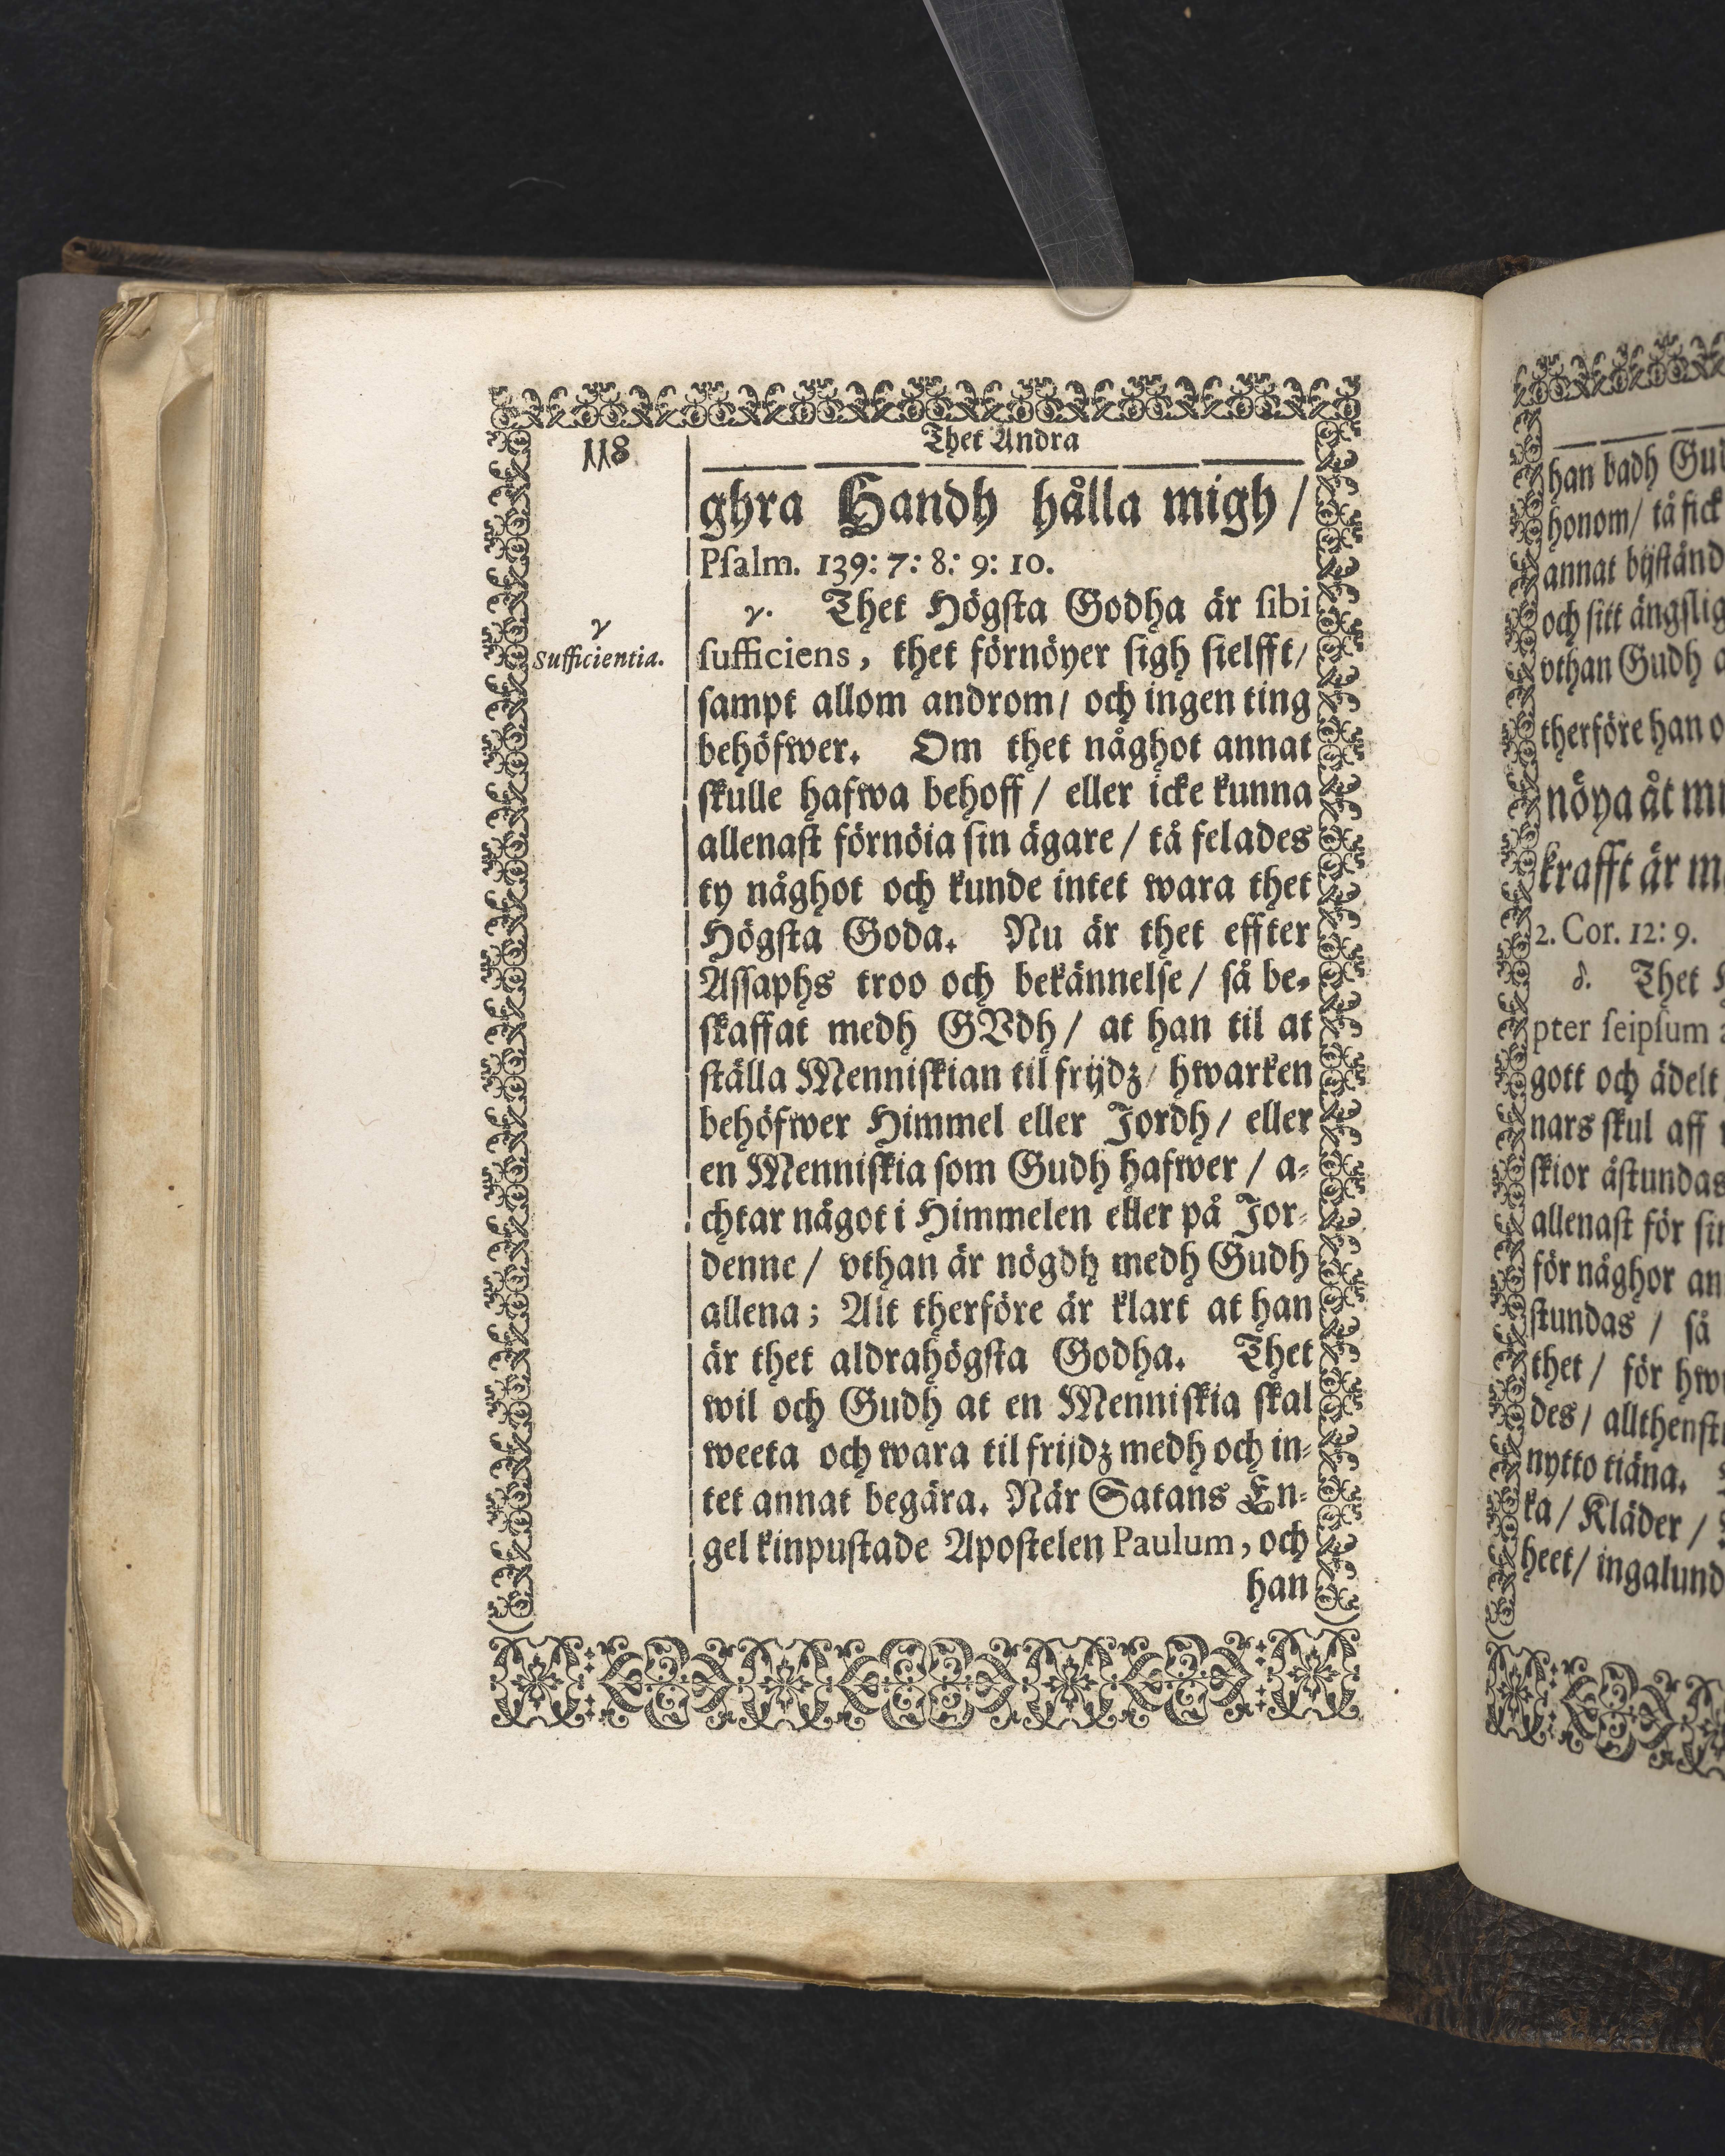 118
Thet Andra
ghra Handh hålla migh /
Pſalm. 139: 7: 8: 9: 10.
γ
Sufficientia.
γ. Thet Högſta Godha är ſibi
ſufficiens, thet förnöyer ſigh ſielfft /
ſampt allom androm / och ingen ting
behöfwer. Om thet någhot annat
ſkulle hafwa behoff / eller icke kunna
allenaſt förnöia ſin ägare / tå felades
ty någhot och kunde intet wara thet
Högſta Goda. Nu är thet effter
Aſſaphs troo och bekännelſe / ſå be-
ſkaffat medh GVdh / at han til at
ſtälla Menniſkian til frijdz / hwarken
behöfwer Himmel eller Jordh / eller
en Menniſkia ſom Gudh hafwer / a-
chtar något i Himmelen eller på Jor-
denne / vthan är nögdh medh Gudh
allena; Alt therföre är klart at han
är thet aldrahögſta Godha. Thet
wil och Gudh at en Menniſkia ſkal
weeta och wara til frijdz medh och in-
tet annat begära. När Satans En-
gel kinpuſtade Apoſtelen Paulum, och
han
han badh
honom / tå fick
annat bijſtånd
och ſitt ängſlig
vthan Gudh
therföre han
nöya åt
krafft är
2. Cor. 12: 9.
δ. Thet
pter ſeipſum
gott och ädelt
nars ſkul aff
ſkior åſtundas
allenaſt för
för någhor
ſtundas / ſå
thet / för
des / allthenſt
nytto tiäna.
ka / Kläder /
heet / ingalund